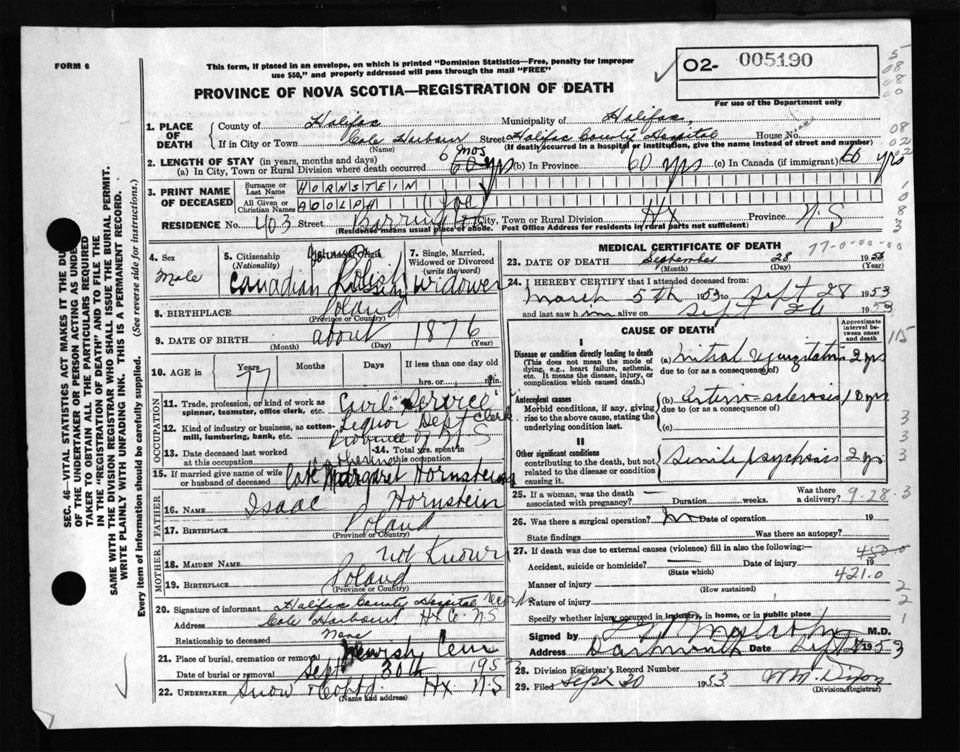 FORM 6
This form, if placed in an envelope, on which is printed "Dominion Statistics—Free, penalty for improper
use $50," and properly addressed will pass through the mail "FREE"
PROVINCE OF NOVA SCOTIA—REGISTRATION OF DEATH
02- 005190
For use of the Department only
1. PLACE OF DEATH County of Halifax Municipality of Halifax
If in City or Town Cole Harbour Street Halifax County Hospital House No.
(Name) (If death occurred in a hospital or institution, give the name instead of street and number)
2. LENGTH OF STAY (in years, months and days) 6 mos
(a) In City, Town or Rural Division where death occurred 60 yrs (b) In Province 60 yrs (c) In Canada (if immigrant) 60 yrs
3. PRINT NAME OF DECEASED Surname or Last Name HORNSTEIN
All Given or Christian Names ADOLPH (Joe)
RESIDENCE No. 403 Street City, Town or Rural Division HX Province N.S
(Residence means usual place of abode. Post Office Address for residents in rural parts not sufficient)
4. Sex Male
5. Citizenship (Nationality) Canadian
Polish
7. Single, Married, Widowed or Divorced (write the word) Widower
8. BIRTHPLACE Poland
(Province or Country)
9. DATE OF BIRTH about 1876
(Month) (Day)
10. AGE in Years 77 Months Days If less than one day
hrs. or min.
OCCUPATION
11. Trade, profession, or kind of work as spinner, teamster, office clerk, etc. Civil Service
12. Kind of industry or business, as cotton-mill, lumbering, bank, etc. Liquor Dept Clerk
Province of N S
13. Date deceased last worked at this occupation
14. Total yrs. spent in this occupation
15. If married give name of wife or husband of deceased Margaret Hornstein
FATHER
16. NAME Isaac Hornstein
17. BIRTHPLACE Poland
(Province or Country)
MOTHER
18. MAIDEN NAME not Known
19. BIRTHPLACE Poland
(Province or Country)
20. Signature of informant Halifax County Hospital
Address Cole Harbour Hx Co NS
Relationship to deceased None
21. Place of burial, cremation or removal Jewish Cem
Date of burial or removal Sept 30th 1953
22. UNDERTAKER Snow & Co Ltd. Hx N.S
(Name and address)
MEDICAL CERTIFICATE OF DEATH
77-0-00-00
23. DATE OF DEATH September 28 1953
(Month) (Day) (Year)
24. I HEREBY CERTIFY that I attended deceased from:
March 5th 1953 to Sept 28 1953
and last saw him alive on Sept 26 1953
CAUSE OF DEATH
Approximate interval between onset and death
I
Disease or condition directly leading to death
(This does not mean the mode of dying, e.g., heart failure, asthenia, etc. It means the disease, injury, or complication which caused death.)
(a) Mitral regurgitation 2 yrs
due to (or as a consequence of)
Antecedent causes
Morbid conditions, if any, giving rise to the above cause, stating the underlying condition last
(b) Arterio-sclerosis 10 yrs
due to (or as a consequence of)
(c)
II
Other significant conditions
contributing to the death, but not related to the disease or condition causing it.
Senile psychosis 2 yrs
25. If a woman, was the death associated with pregnancy? Duration weeks. Was there a delivery?
9-28-3
26. Was there a surgical operation? Date of operation 19
State findings Was there an autopsy?
27. If death was due to external causes (violence) fill in also the following:—
450-0
Accident, suicide or homicide? Date of injury 19
(State which) 421.0
Manner of injury
(How sustained)
Nature of injury
Specify whether injury occurred in industry, in home, or in public place
Signed by M.D.
Address Dartmouth Date Sept 28 1953
28. Division Registrar's Record Number
29. Filed Sept 30 1953
(Division Registrar)
SEC. 46—VITAL STATISTICS ACT MAKES IT THE DU
OF THE UNDERTAKER OR PERSON ACTING AS UNDE
TAKER TO OBTAIN ALL THE PARTICULARS REQUIRED
IN THE "REGISTRATION OF DEATH" AND TO FILE THE
SAME WITH THE DIVISION REGISTRAR WHO SHALL ISSUE THE BURIAL PERMIT.
WRITE PLAINLY WITH UNFADING INK. THIS IS A PERMANENT RECORD.
Every item of information should be carefully supplied. (See reverse side for instructions.)